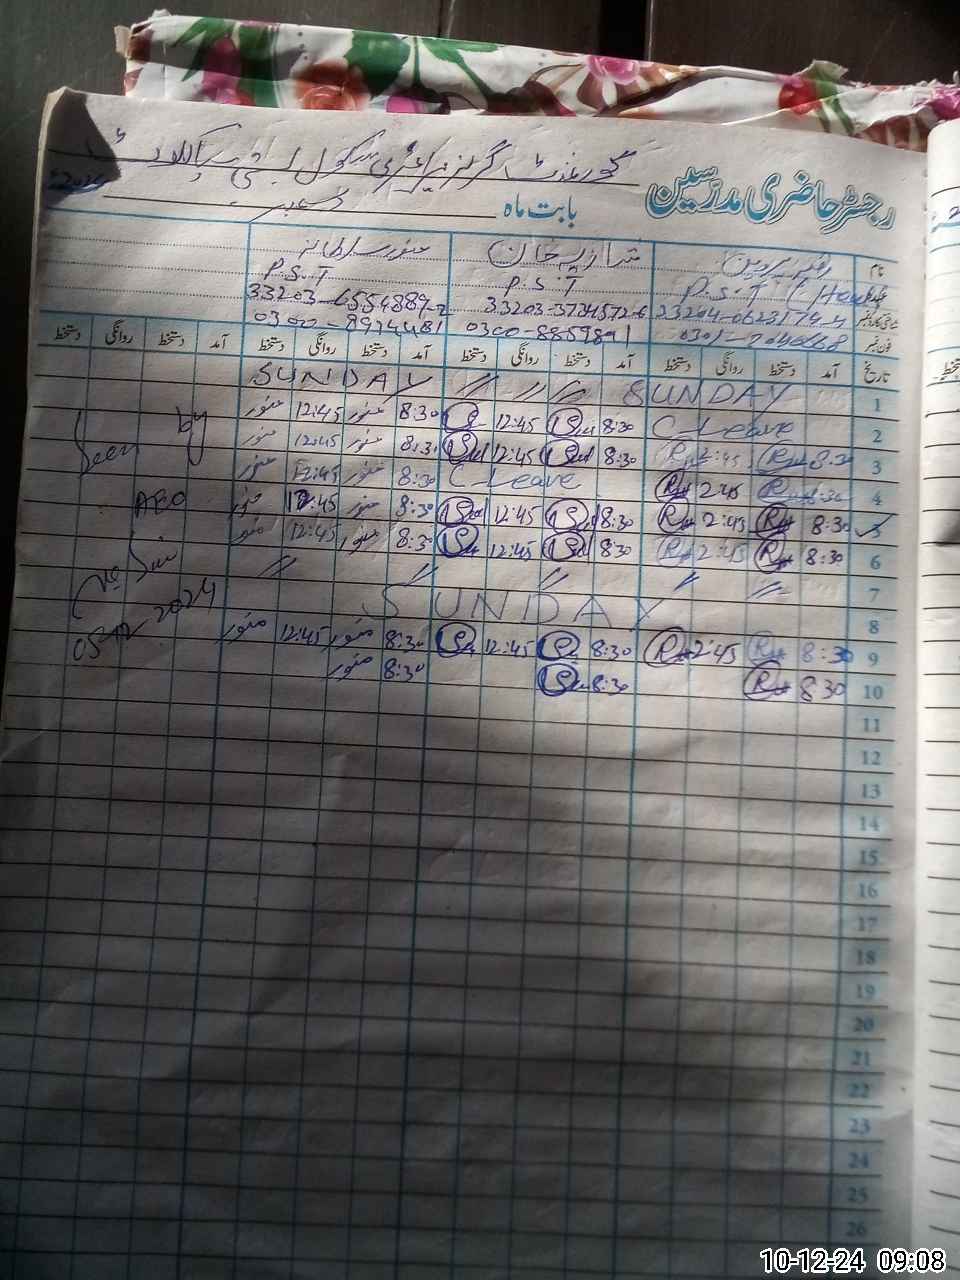 گورنمنٹ گرلز پرائمری سکول بستی
رجسٹر حاضری مدرسین
بابت ماہ دسمبر
2024
نام
شازیہ خان
منور سلطانہ
P.S.T
P.S.T
P.S.T
33203-3734572-6
33203-6554889-2
فون نمبر
0300-8859891
0300-8934481
تاریخ آمد دستخط روانگی دستخط آمد دستخط روانگی دستخط آمد دستخط روانگی دستخط آمد دستخط روانگی دستخط
1 SUNDAY SUNDAY
2 C Leave 8:30 12:45 8:30 منور 12:45 منور
3 8:30 2:45 8:30 12:45 8:30 منور 12:45 منور
4 8:30 2:45 C Leave 8:30 منور 12:45 منور
5 8:30 2:45 8:30 12:45 8:30 منور 12:45 منور
6 8:30 2:45 8:30 12:45 8:30 منور 12:45 منور
7
8 SUNDAY
9 8:30 2:45 8:30 12:45 8:30 منور 12:45 منور
10 8 30 8:30 8:30 منور
11
12
13
14
15
16
17
18
19
20
21
22
23
24
25
26
Seen by
AEO
05-12-2024
دستخط
10-12-24 09:08